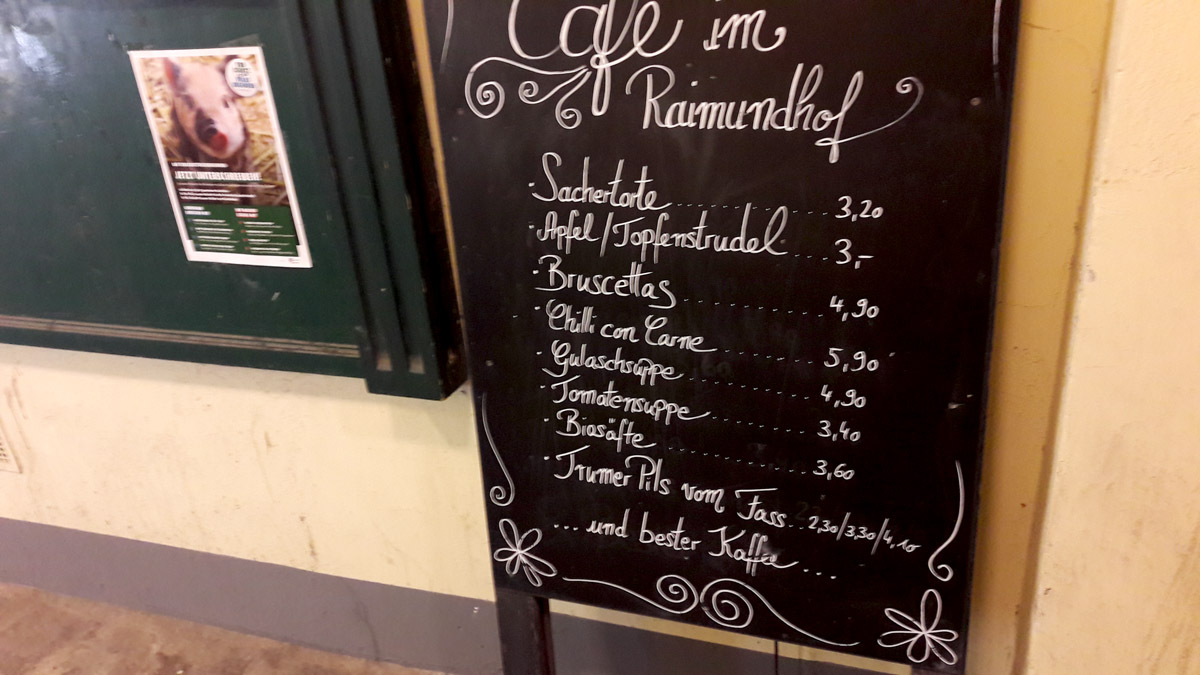 JETZT UNTERSCHREIBEN!
Café im
Raimundhof
· Sachertorte ........ 3,20
· Apfel/Topfenstrudel .... 3,-
· Bruscettas ........ 4,90
· Chilli con Carne ........ 5,90
· Gulaschsuppe ........ 4,90
· Tomatensuppe ........ 3,40
· Biosäfte ........ 3,60
· Trumer Pils vom Fass .. 2,30/3,30/4,10
... und bester Kaffee ...